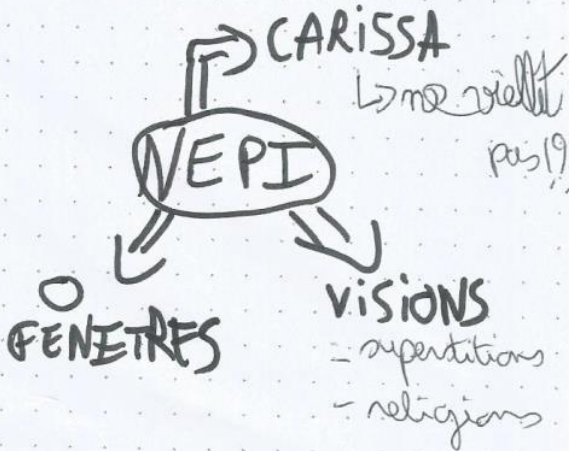 CARISSA
↳ ne viellit
pas !?
NEPI
O
FENETRES
VISIONS
- superstitions
- religions